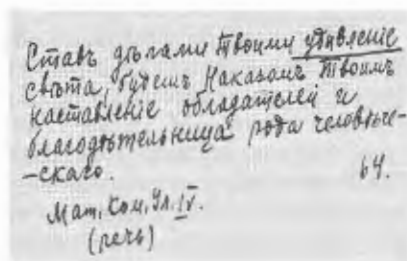 Ставъ дѣлами Твоими удивленіе
свѣта, будешь Наказомъ Твоимъ
наставленіе обладателей и
благодѣтельница рода человѣче-
-скаго. 64.
Мат. Ком. Ул. IV.
(речь)